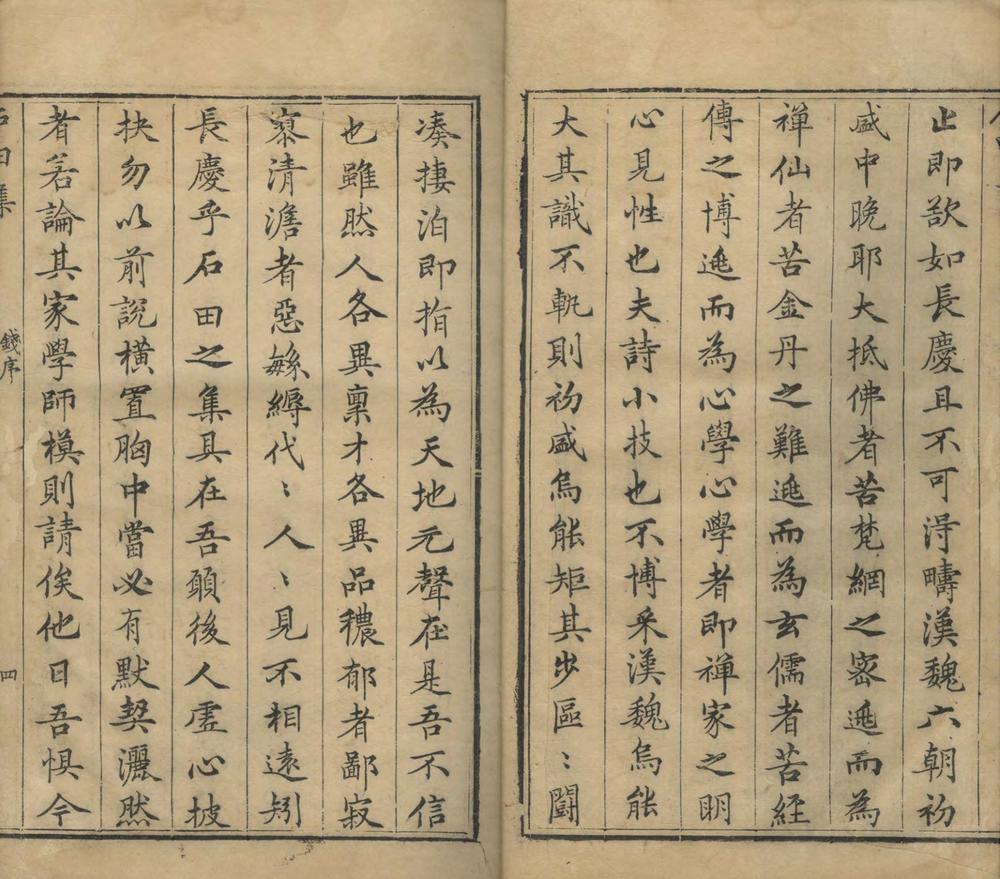 止即欲如長慶且不可得疇漢魏六朝初
盛中晚耶大抵佛者苦梵網之密逃而為
禪仙者苦金丹之難逃而為玄儒者苦經
傳之博逃而為心學心學者即禪家之明
心見性也夫詩小技也不博采漢魏烏能
大其識不軌則初盛烏能矩其步區〻闘
湊捿泊即指以為天地元聲在是吾不信
也雖然人各異稟才各異品穠郁者鄙寂
寥清澹者惡緐縟代〻人〻見不相遠矧
長慶乎石田之集具在吾願後人虛心披
抉勿以前說橫置胸中當必有默契灑然
者若論其家學師模則請俟他日吾懼今
石田集 錢序 四